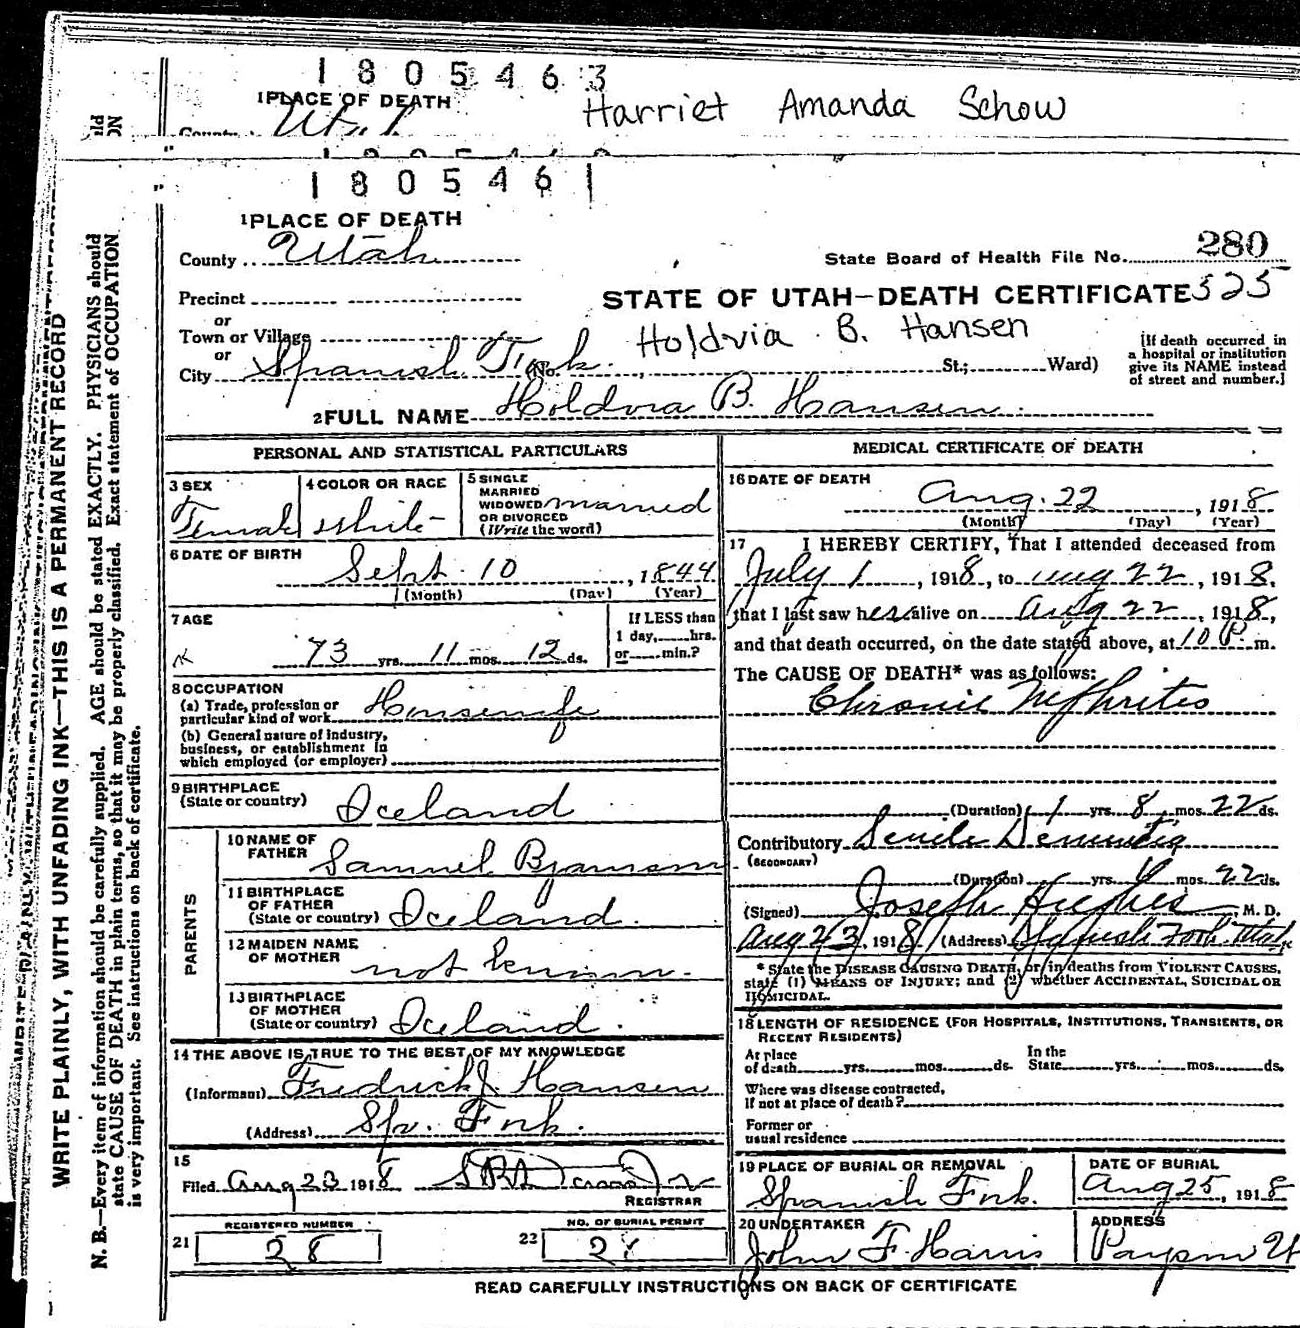 1 8 0 5 4 6 3
1 PLACE OF DEATH
Harriet Amanda Schow
County
1 8 0 5 4 6 1
1 PLACE OF DEATH
County Utah
State Board of Health File No. 280
Precinct
STATE OF UTAH—DEATH CERTIFICATE 325
or
Town or Village
Holdvia B. Hansen
or
City Spanish Fork (No. St.; Ward)
[If death occurred in
a hospital or institution
give its NAME instead
of street and number.]
2 FULL NAME Holdvia B. Hansen
PERSONAL AND STATISTICAL PARTICULARS
3 SEX Female
4 COLOR OR RACE White
5 SINGLE
MARRIED
WIDOWED
OR DIVORCED
(Write the word)
married
6 DATE OF BIRTH
Sept. 10, 1844
(Month) (Day) (Year)
7 AGE
73 yrs. 11 mos. 12 ds.
If LESS than
1 day, hrs.
or min.?
8 OCCUPATION
(a) Trade, profession or
particular kind of work Housewife
(b) General nature of industry,
business, or establishment in
which employed (or employer)
9 BIRTHPLACE
(State or country) Iceland
PARENTS
10 NAME OF
FATHER Samuel
11 BIRTHPLACE
OF FATHER
(State or country) Iceland.
12 MAIDEN NAME
OF MOTHER not known.
13 BIRTHPLACE
OF MOTHER
(State or country) Iceland.
14 THE ABOVE IS TRUE TO THE BEST OF MY KNOWLEDGE
(Informant) Fredrick J. Hansen
(Address) Sp. Fork.
15
Filed Aug 23 1918
REGISTRAR
REGISTERED NUMBER
21 28
NO. OF BURIAL PERMIT
22
MEDICAL CERTIFICATE OF DEATH
16 DATE OF DEATH
Aug. 22, 1918
(Month) (Day) (Year)
17 I HEREBY CERTIFY, That I attended deceased from
July 1, 1918, to Aug 22, 1918,
that I last saw her alive on Aug 22, 1918,
and that death occurred, on the date stated above, at 10 P. m.
The CAUSE OF DEATH* was as follows:
Chronic Nephritis
(Duration) 1 yrs. 8 mos. 22 ds.
Contributory Senile
(SECONDARY)
(Duration) yrs. mos. 22 ds.
(Signed) Joseph Hughes, M. D.
Aug 23, 1918 (Address) Spanish Fork Utah
* State the DISEASE CAUSING DEATH, or in deaths from VIOLENT CAUSES,
state (1) MEANS OF INJURY; and (2) whether ACCIDENTAL, SUICIDAL OR
HOMICIDAL.
18 LENGTH OF RESIDENCE (FOR HOSPITALS, INSTITUTIONS, TRANSIENTS, OR
RECENT RESIDENTS)
At place
of death yrs. mos. ds.
In the
State yrs. mos. ds.
Where was disease contracted,
If not at place of death?
Former or
usual residence
19 PLACE OF BURIAL OR REMOVAL
Spanish Fork.
DATE OF BURIAL
Aug 25, 1918
20 UNDERTAKER
John F. Harris
ADDRESS
Payson Ut
READ CAREFULLY INSTRUCTIONS ON BACK OF CERTIFICATE
WRITE PLAINLY, WITH UNFADING INK—THIS IS A PERMANENT RECORD
N. B.—Every item of information should be carefully supplied. AGE should be stated EXACTLY. PHYSICIANS should
state CAUSE OF DEATH in plain terms, so that it may be properly classified. Exact statement of OCCUPATION
is very important. See instructions on back of certificate.